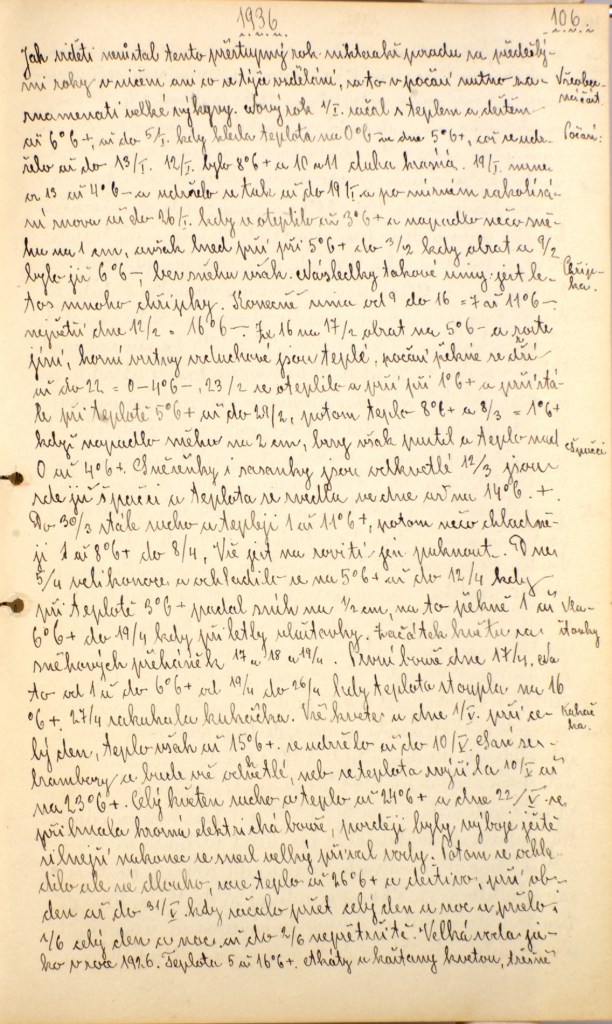 1936
106.
Jak viděti neustal tento přestupný rok nikterak pozadu za předešlý-
mi roky v ničem ani co se týče vzdělání, za to v počasí nutno za-
Všeobec-
ná část
znamenati velké výkyvy. Nový rok 1/I. začal s teplem a deštěm
až 6°6+, až do 5/I. kdy klesla teplota na 0°6 dne 5°6+, což se udr-
Počasí:
želo až do 13/I. 12/I. bylo 8°6+ a 10 a 11 duha krásná. 19/I.
13 až 4°6- a udrželo se tak až do 19/I. a po mírném zakolísá-
ní znova až do 26/I. kdy se oteplilo až 3°6+ a napadlo něco sně-
hu na 1 cm, avšak hned prší při 5°6+ do 3/2 kdy obrat a 9/2
bylo již 6°6-, bez sněhu však. Následky takové zimy: jest le-
Chřip-
ka.
tos mnoho chřipky. Konečně zima od 9 do 16 = 7 až 11°6-.
největší dne 12/2 = 16°6-. Ze 16 na 17/2 obrat na 5°6- a
jíní, horní vrstvy vzduchové jsou teplé, počasí pěkné se drží
až do 22 = 0-4°6-, 23/2 se oteplilo a prší při 1°6+ a prší stá-
le při teplotě 5°6+ až do 29/2, potom teplo 8°6+ a 8/3 = 1°6+
když napadlo sněhu na 2 cm, brzy však pustil a teplo nad
Špačci
0 až 4°6+. Sněženky i sasanky jsou odkvetlé 12/3 jsou
zde již špačci a teplota se zvedla ve dne až na 14°6.+.
Do 30/3 stále sucho a tepleji 1 až 11°6+, potom něco chladně-
ji 1 až 8°6+ do 8/4, Vše jest na rozvití jen puknout. Dnes
5/4 velikonoce a ochladilo se na 5°6+ až do 12/4 kdy
při teplotě 3°6+ padal sníh na 1/2 cm, na to pěkně 1 až
Vla-
štovky
6°6+ do 19/4 kdy přiletly vlaštovky. Začátek květu za
sněhových přeháněk 17 a 18 a 19/4. První bouře dne 17/4, na
to od 1 až do 6°6+ od 19/4 do 26/4 kdy teplota stoupla na 16
°6+. 27/4 zakukala kukačka. Vše kvete a dne 1/V. prší ce-
Kukač-
ka.
lý den, teplo však až 15°6+. se udrželo až do 10/V.
brambory a bude vše odkvetlé, neb se teplota zvýšila 10/V až
na 23°6+. Celý květen sucho a teplo až 24°6+ a dne 22/V. se
přihnala hrozná elektrická bouře, později byly výboje ještě
silnější nakonec se snesl velký příval vody. Potom se ochla-
dilo ale né dlouho, zase teplo až 26°6+ a deštivo, prší ob-
den až do 31/V kdy začalo pršet celý den a noc a pršelo i
1/6 celý den a noc až do 2/6 nepřetržitě. Velká voda ja-
ko v roce 1926. Teplota 5 až 16°6+. Akáty a kaštany kvetou, třešně